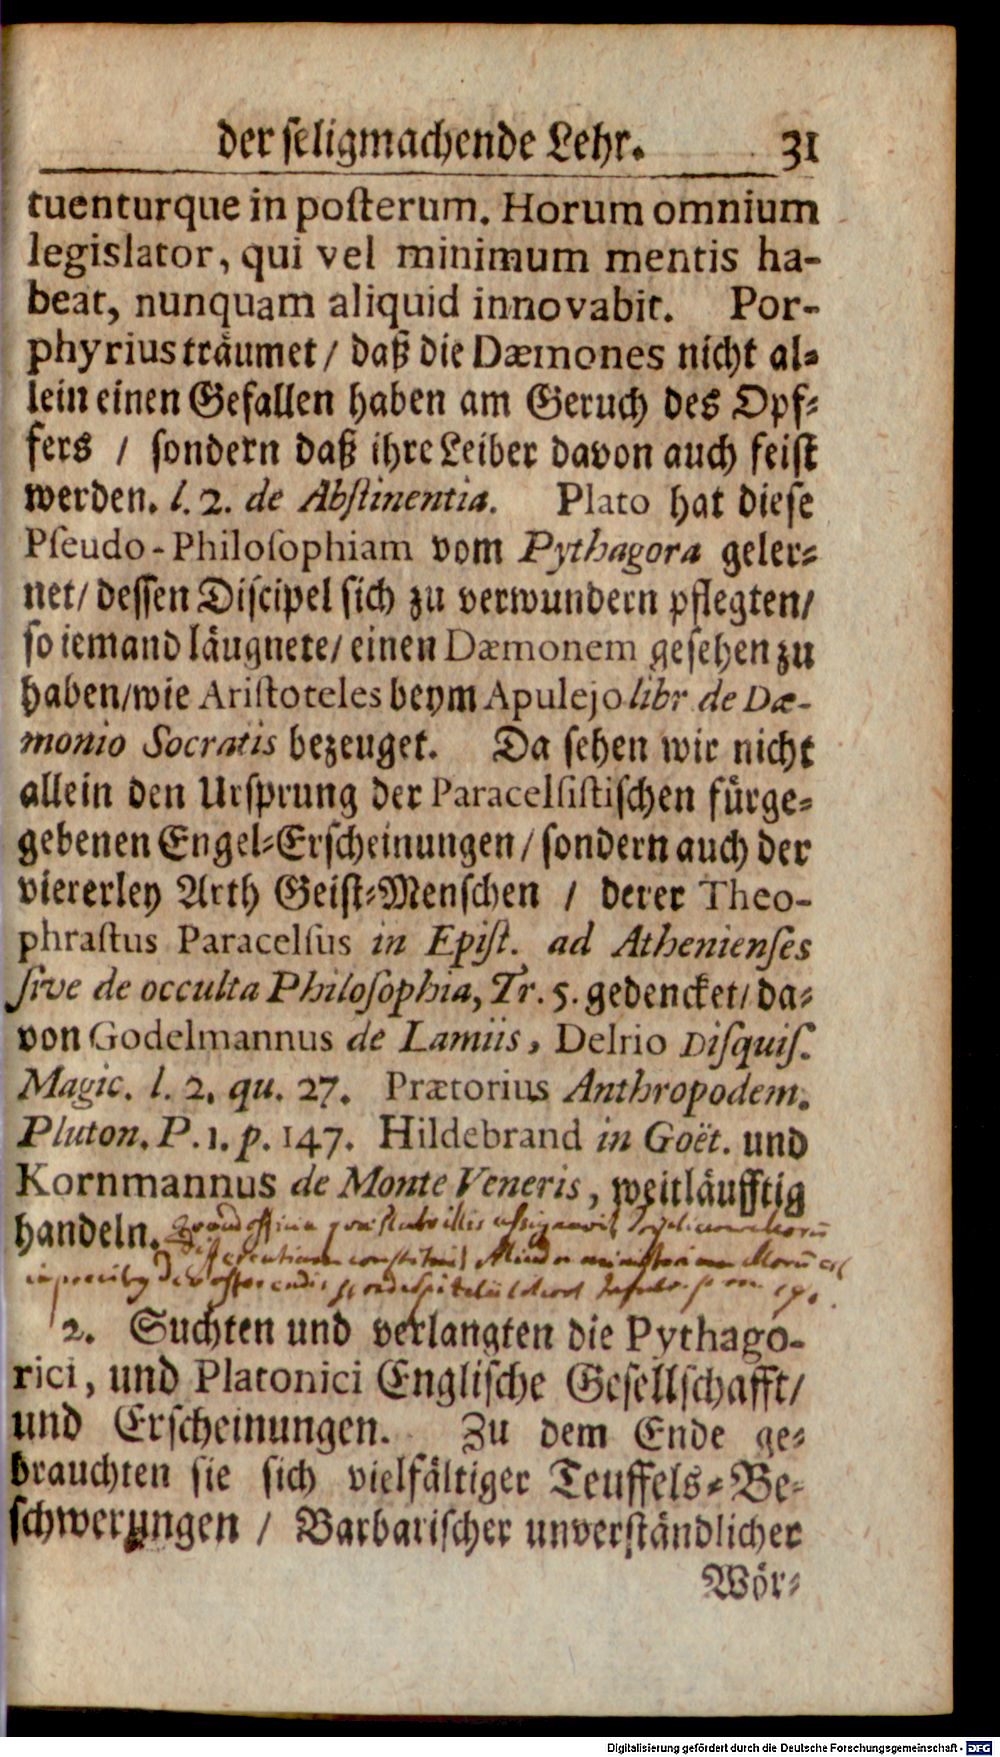 der seligmachende Lehr. 31
tuenturque in posterum. Horum omnium
legislator, qui vel minimum mentis ha-
beat, nunquam aliquid innovabit. Por-
phyrius träumet / daß die Dæmones nicht al-
lein einen Gefallen haben am Geruch des Opf-
fers / sondern daß ihre Leiber davon auch feist
werden. l. 2. de Abstinentia. Plato hat diese
Pseudo-Philosophiam vom Pythagora geler-
net / dessen Discipel sich zu verwundern pflegten /
so iemand läugnete / einen Dæmonem gesehen zu
haben / wie Aristoteles beym Apulejo libr de Dæ-
monio Socratis bezeuget. Da sehen wir nicht
allein den Ursprung der Paracelsistischen fürge-
gebenen Engel-Erscheinungen / sondern auch der
viererley Arth Geist-Menschen / derer Theo-
phrastus Paracelsus in Epist. ad Athenienses
sive de occulta Philosophia, Tr. 5. gedencket / da-
von Godelmannus de Lamiis, Delrio Disquis.
Magic. l. 2. qu. 27. Prætorius Anthropodem.
Pluton. P. 1. p. 147. Hildebrand in Goët. und
Kornmannus de Monte Veneris, weitläufftig
handeln.
2. Suchten und verlangten die Pythago-
rici, und Platonici Englische Gesellschafft /
und Erscheinungen. Zu dem Ende ge-
brauchten sie sich vielfältiger Teuffels-Be-
schwerungen / Barbarischer unverständlicher
Wör-
Digitalisierung gefördert durch die Deutsche Forschungsgemeinschaft - DFG